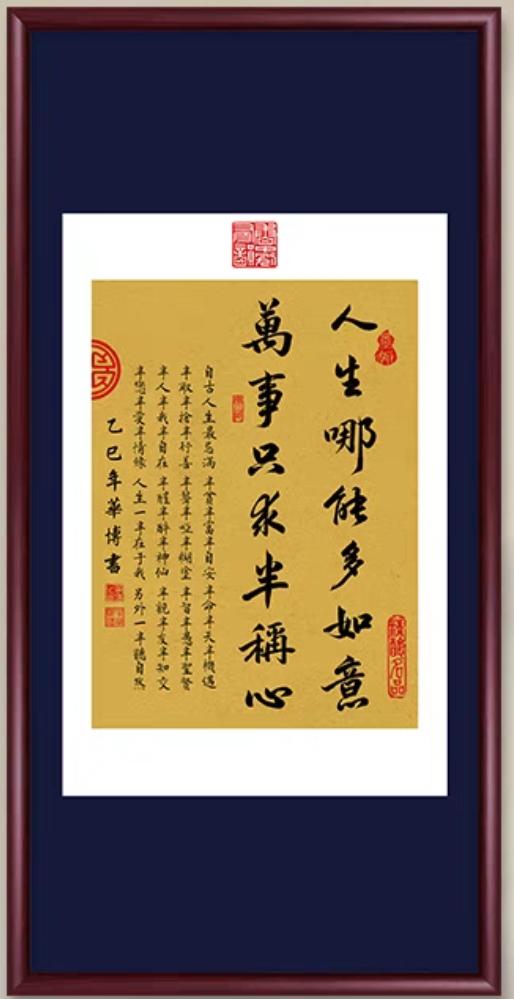 人生哪能多如意
萬事只求半稱心
自古人生最忌滿 半貧半富半自安 半命半天半機遇
半取半捨半行善 半聾半啞半糊塗 半智半愚半聖賢
半人半我半自在 半醒半醉半神仙 半親半友半知交
半戀半愛半情緣 人生一半在于我 另外一半聽自然
乙巳年華博書